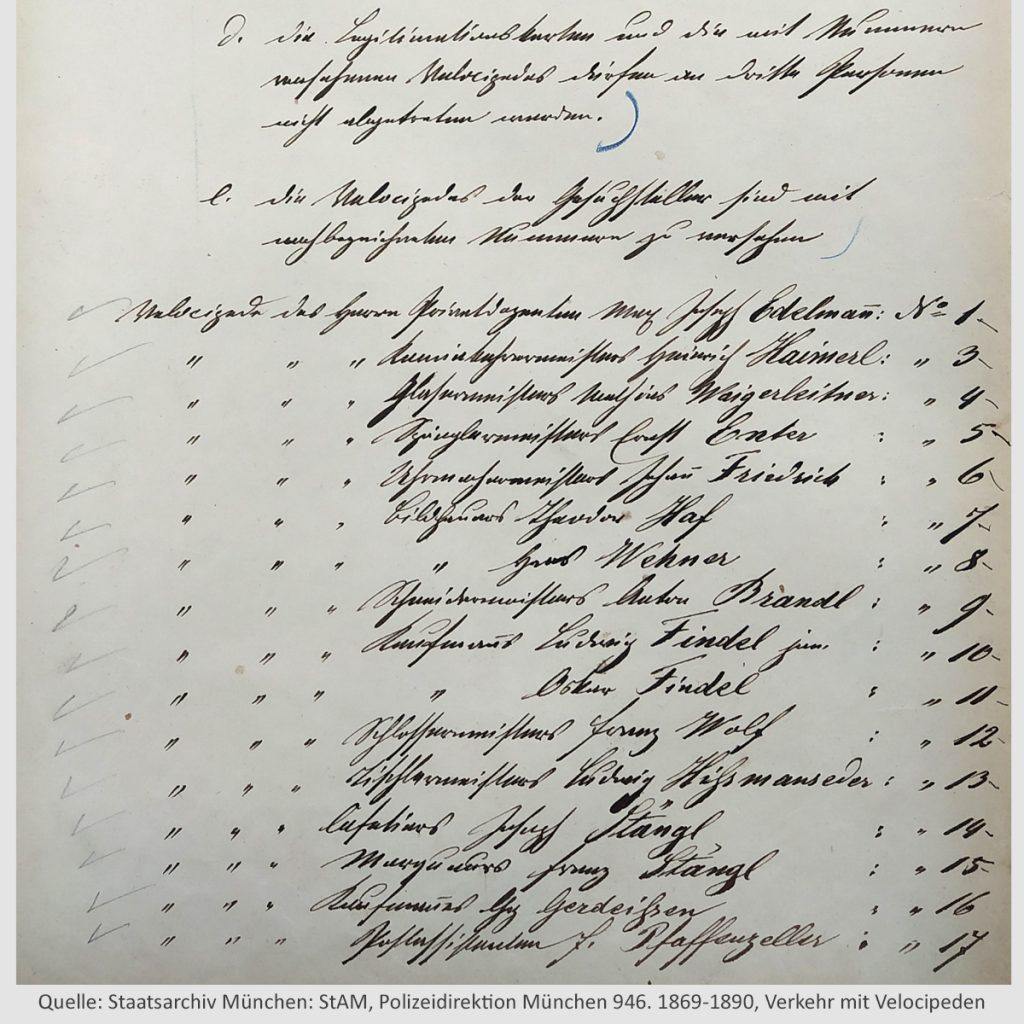 d. die Legitimationskarten und die mit Nummern
versehenen Velocipedes dürfen an dritte Personen
nicht abgetreten werden.
e. die Velocipedes der Gesuchsteller sind mit
nachbezeichneten Nummern zu versehen
Velocipede des Herrn Privatdozenten Max Joseph Edelmann: No 1-
" " " Kaminkehrermeisters Heinrich Haimerl: " 3-
" " " Glasermeisters Mathias Waigerleitner: " 4-
" " " Spänglermeisters Ernst Enter : " 5-
" " " Uhrmachermeisters Johann Friedrich : " 6-
" " " Bildhauers Theodor Haf : " 7-
" " " " Hans Wehner : " 8-
" " " Schneidermeisters Anton Brandl : " 9-
" " " Kaufmanns Ludwig Findel jun. : " 10-
" " " " Oskar Findel : " 11-
" " " Schlossermeisters Franz Wolf : " 12-
" " " Tischlermeisters Ludwig Hißmanseder : " 13-
" " " Cafetiers Joseph Stängl : " 14-
" " " Marqueurs Franz Stängl : " 15-
" " " Kaufmannes Gg Gerdeißen : " 16
" " " Postassistenten J. Pfaffenzeller : " 17
Quelle: Staatsarchiv München: StAM, Polizeidirektion München 946. 1869-1890, Verkehr mit Velocipeden